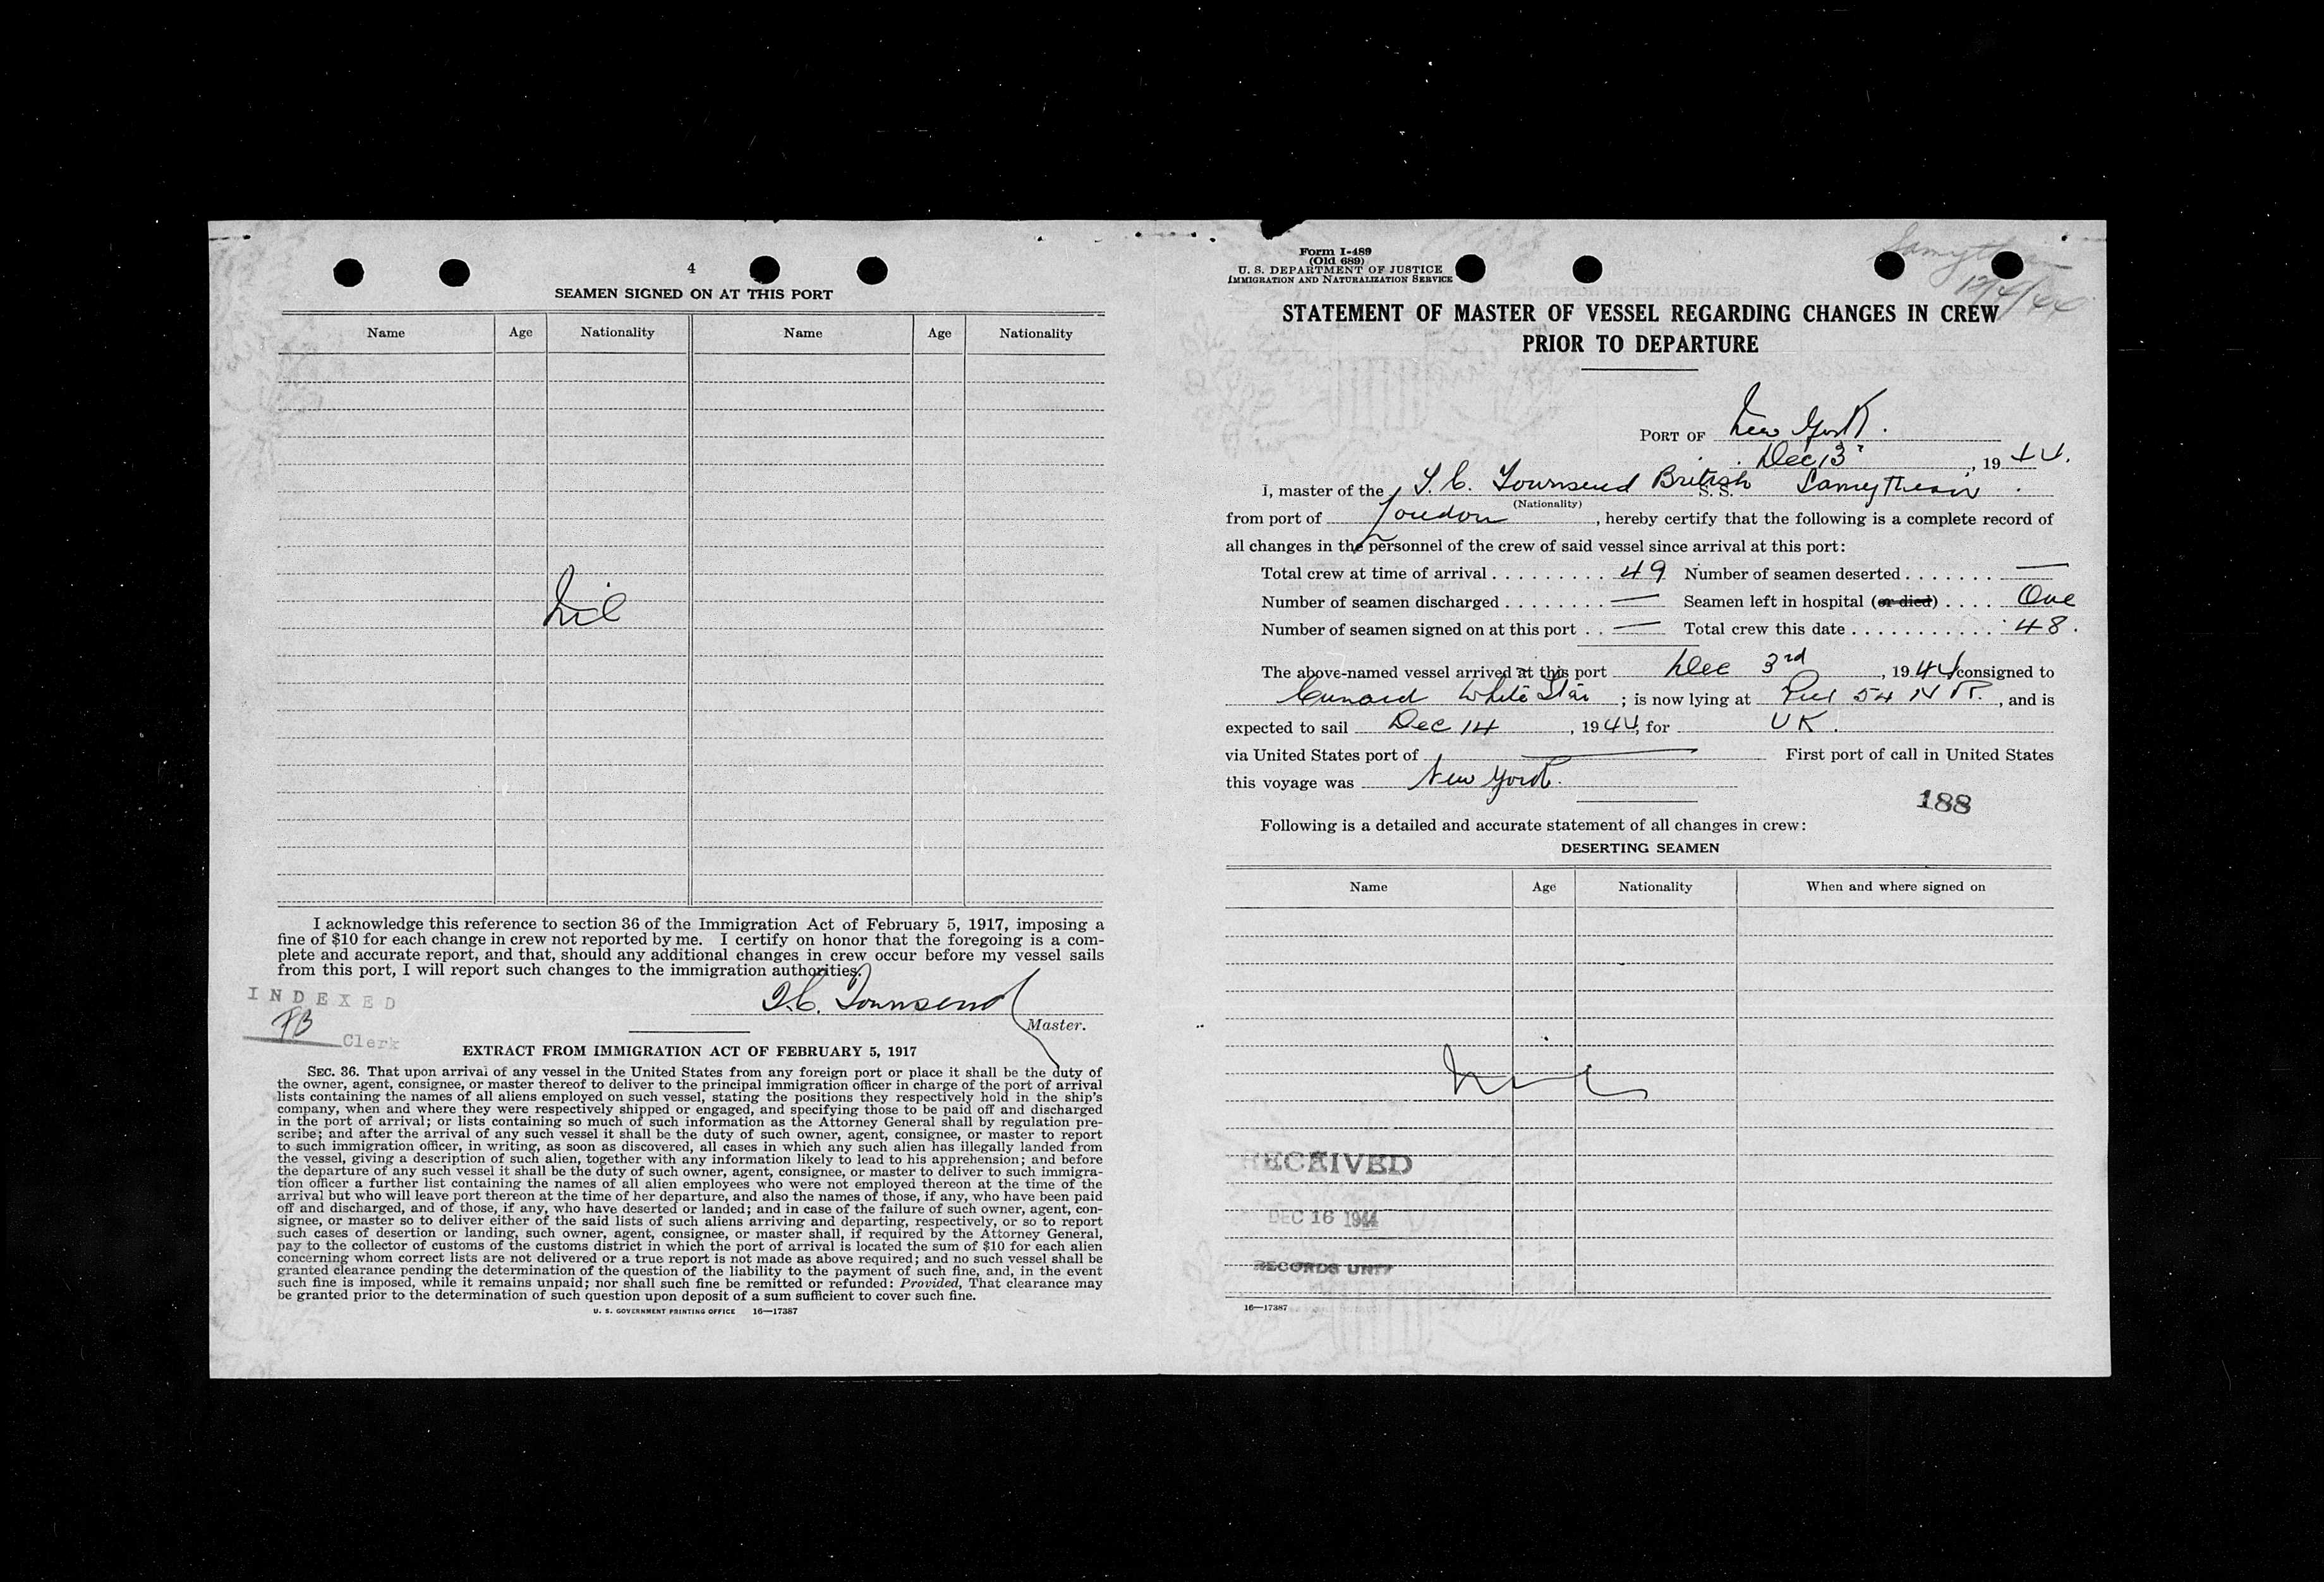 4
SEAMEN SIGNED ON AT THIS PORT
Name Age Nationality Name Age Nationality
Nil
I acknowledge this reference to section 36 of the Immigration Act of February 5, 1917, imposing a
fine of $10 for each change in crew not reported by me. I certify on honor that the foregoing is a com-
plete and accurate report, and that, should any additional changes in crew occur before my vessel sails
from this port, I will report such changes to the immigration authorities.
INDEXED
Clerk
T.C. Townsend
Master.
EXTRACT FROM IMMIGRATION ACT OF FEBRUARY 5, 1917
SEC. 36. That upon arrival of any vessel in the United States from any foreign port or place it shall be the duty of
the owner, agent, consignee, or master thereof to deliver to the principal immigration officer in charge of the port of arrival
lists containing the names of all aliens employed on such vessel, stating the positions they respectively hold in the ship's
company, when and where they were respectively shipped or engaged, and specifying those to be paid off and discharged
in the port of arrival; or lists containing so much of such information as the Attorney General shall by regulation pre-
scribe; and after the arrival of any such vessel it shall be the duty of such owner, agent, consignee, or master to report
to such immigration officer, in writing, as soon as discovered, all cases in which any such alien has illegally landed from
the vessel, giving a description of such alien, together with any information likely to lead to his apprehension; and before
the departure of any such vessel it shall be the duty of such owner, agent, consignee, or master to deliver to such immigra-
tion officer a further list containing the names of all alien employees who were not employed thereon at the time of the
arrival but who will leave port thereon at the time of her departure, and also the names of those, if any, who have been paid
off and discharged, and of those, if any, who have deserted or landed; and in case of the failure of such owner, agent, con-
signee, or master so to deliver either of the said lists of such aliens arriving and departing, respectively, or so to report
such cases of desertion or landing, such owner, agent, consignee, or master shall, if required by the Attorney General,
pay to the collector of customs of the customs district in which the port of arrival is located the sum of $10 for each alien
concerning whom correct lists are not delivered or a true report is not made as above required; and no such vessel shall be
granted clearance pending the determination of the question of the liability to the payment of such fine, and, in the event
such fine is imposed, while it remains unpaid; nor shall such fine be remitted or refunded: Provided, That clearance may
be granted prior to the determination of such question upon deposit of a sum sufficient to cover such fine.
U. S. GOVERNMENT PRINTING OFFICE 16—17387
Form I-489
(Old 689)
U. S. DEPARTMENT OF JUSTICE
IMMIGRATION AND NATURALIZATION SERVICE
STATEMENT OF MASTER OF VESSEL REGARDING CHANGES IN CREW
PRIOR TO DEPARTURE
PORT OF New York.
Dec 13, 1944.
I, master of the T. C. Townsend British S. S. Samythian.
(Nationality)
from port of London, hereby certify that the following is a complete record of
all changes in the personnel of the crew of said vessel since arrival at this port:
Total crew at time of arrival . . . . . . . . . . 49 Number of seamen deserted . . . . . . . —
Number of seamen discharged . . . . . . . . — Seamen left in hospital (or died) . . . . One
Number of seamen signed on at this port . . — Total crew this date . . . . . . . . . . . . 48.
The above-named vessel arrived at this port Dec 3rd, 1944 consigned to
Cunard White Star; is now lying at Pier 54 N R., and is
expected to sail Dec 14, 1944, for UK.
via United States port of — First port of call in United States
this voyage was New York.
188
Following is a detailed and accurate statement of all changes in crew:
DESERTING SEAMEN
Name Age Nationality When and where signed on
Nil
RECEIVED
DEC 16 1944
RECORDS UNIT
16—17387